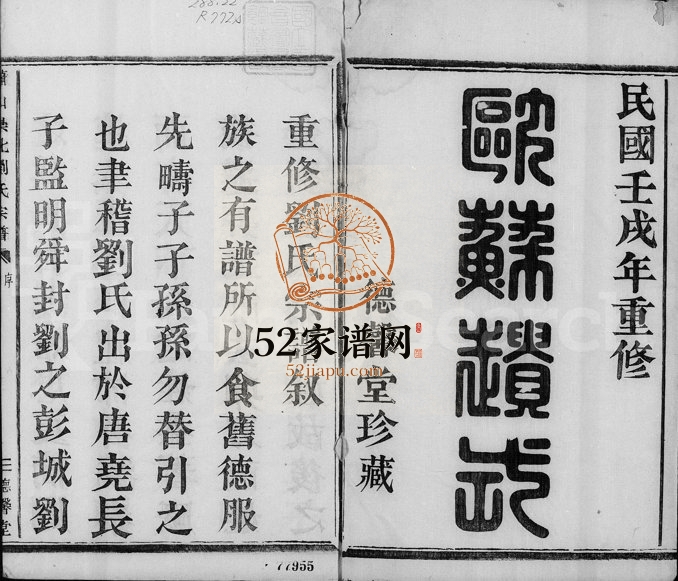 288.22
R772s
民國壬戌年重修
歐蘇遺式
德馨堂珍藏
重修劉氏宗譜叙
族之有譜所以食舊德服
先疇子子孫孫勿替引之
也聿稽劉氏出於唐堯長
子監明舜封劉之彭城劉
北劉氏宗譜
序
德馨堂
52家谱网
52jiapu.com
77955